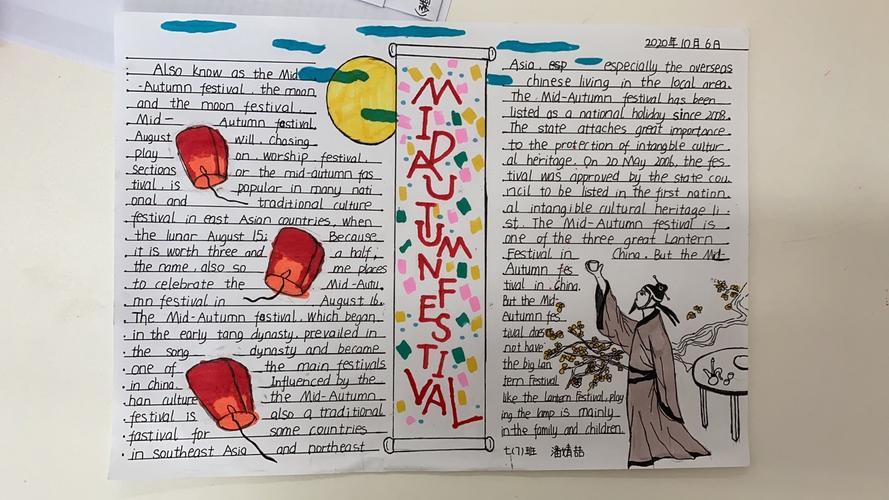 Also know as the Mid
-Autumn festival, the moon
and the moon festival,
Mid- Autumn festival.
August Will, chasing
play on worship festival.
sections or the mid-autumn fas
tival, is popular in many nati
onal and traditional culture
festival in east Asian countries, when
the lunar August 15; Because
it is worth three and a half,
the name, also so me places
to celebrate the Mid-Autu.
mn festival in August 16.
The Mid-Autumn fastival, which began
in the early tang dynasty, prevailed in
the song dynasty and became
one of the main festivals
in china. Influenced by the
han culture the Mid-Autumn
festival is also a traditional
fastival for some countries
in southeast Asia and northeast
MID AUTUMN FESTIVAL
2020年10月6日
Asia, esp especially the overseas
chinese living in the local area.
The Mid-Autumn festival has been
listed as a national holiday since 2008.
The state attaches great importance
to the protection of intangble cultur
al heritage. On 20 May 2006, the fes
tival was approved by the state cou
ncil to be listed in the first nation.
al intangible cultural heritage li.
st. The Mid-Autumn festival is
one of the three great Lantern
Festival in China. But the Mid-
Autumn fes
tival in china.
But the Mid-
Autumn fes
tival does
not have
the big lan
tern Festival
like the Lantern Festival, play
ing the lamp is mainly
in the family and children.
七(7)班 潘婧喆